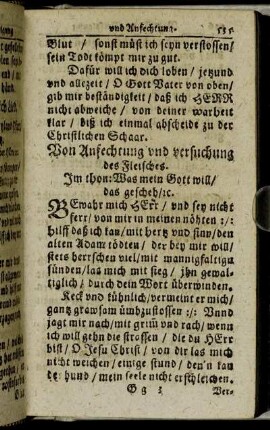 und Anfechtung. 535.
Blut / sonst müst ich seyn verstossen /
sein Todt kömpt mir zu gut.
Dafür will ich dich loben / jezund
und allezeit / O Gott Vater von oben /
gib mir beständigkeit / daß ich HERR
nicht abweiche / von deiner warheit
klar / biß ich einmal abscheide zu der
Christlichen Schaar.
Von Anfechtung und versuchung
des Fleisches.
Im thon: Was mein Gott will /
das gescheh / ıc.
BEwahr mich HErr / und sey nicht
ferr / von mir in meinen nöhten :/:
hilff daß ich kan / mit hertz und sinn / den
alten Adam tödten / der bey mir will /
stets herrschen viel / mit mannigfaltign
sünden / laß mich mit sieg / jhn gewal-
tiglich / durch dein Wort überwinden.
Keck und kühnlich / vermeint er mich /
gantz grawsam ümbzustossen :/: Unnd
jagt mir nach / mit grim und rach / wenn
ich will gehn die strassen / die du HErr
bist / O Jesu Christ / von dir las mich
nicht weichen / einige stund / den'n kan
de: hund / mein seele nicht erschleichen.
G g 3 Ver-